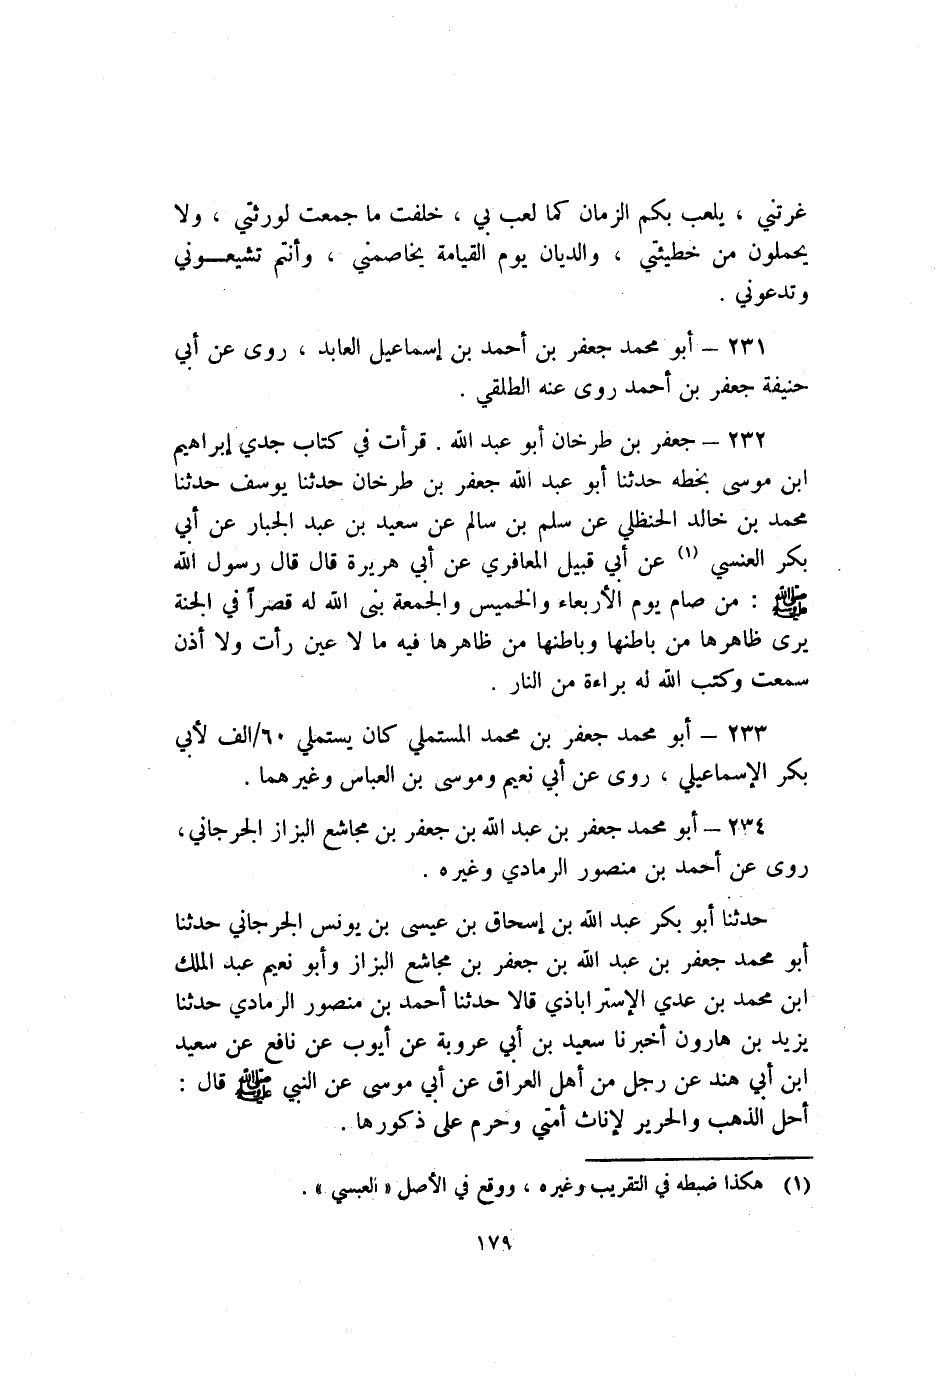 غرتني ، يلعب بكم الزمان كما لعب بي ، خلفت ما جمعت لورثتي ، ولا
يحملون من خطيئتي ، والديان يوم القيامة يخاصمني ، وأنتم تشيعـــوني
وتدعوني .
٢٣١ – أبو محمد جعفر بن أحمد بن إسماعيل العابد ، روى عن أبي
حنيفة جعفر بن أحمد روى عنه الطلقي .
٢٣٢ – جعفر بن طرخان أبو عبد الله . قرأت في كتاب جدي إبراهيم
ابن موسى بخطه حدثنا أبو عبد الله جعفر بن طرخان حدثنا يوسف حدثنا
محمد بن خالد الحنظلي عن سلم بن سالم عن سعيد بن عبد الجبار عن أبي
بكر العنسي (١) عن أبي قبيل المعافري عن أبي هريرة قال قال رسول الله
ﷺ : من صام يوم الأربعاء والخميس والجمعة بنى الله له قصراً في الجنة
يرى ظاهرها من باطنها وباطنها من ظاهرها فيه ما لا عين رأت ولا أذن
سمعت وكتب الله له براءة من النار .
٢٣٣ – أبو محمد جعفر بن محمد المستملي كان يستملي ٦٠/الف لأبي
بكر الإسماعيلي ، روى عن أبي نعيم وموسى بن العباس وغيرهما .
٢٣٤ – أبو محمد جعفر بن عبد الله بن جعفر بن مجاشع البزاز الجرجاني ،
روى عن أحمد بن منصور الرمادي وغيره .
حدثنا أبو بكر عبد الله بن إسحاق بن عيسى بن يونس الجرجاني حدثنا
أبو محمد جعفر بن عبد الله بن جعفر بن مجاشع البزاز وأبو نعيم عبد الملك
ابن محمد بن عدي الإستراباذي قالا حدثنا أحمد بن منصور الرمادي حدثنا
يزيد بن هارون أخبرنا سعيد بن أبي عروبة عن أيوب عن نافع عن سعيد
ابن أبي هند عن رجل من أهل العراق عن أبي موسى عن النبي ﷺ قال :
أحل الذهب والحرير لإناث أمتي وحرم على ذكورها .
(١) هكذا ضبطه في التقريب وغيره ، ووقع في الأصل « العبسي » .
١٧٩